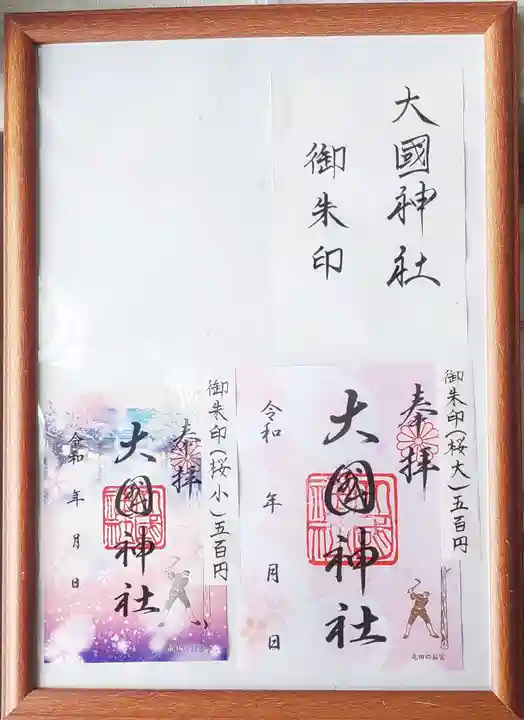 大國神社
御朱印
御朱印(桜大)五百円
奉拝
大國神社
令和 年 月 日
屯田のお宮
御朱印(桜小)五百円
奉拝
大國神社
令和 年 月 日
屯田のお宮